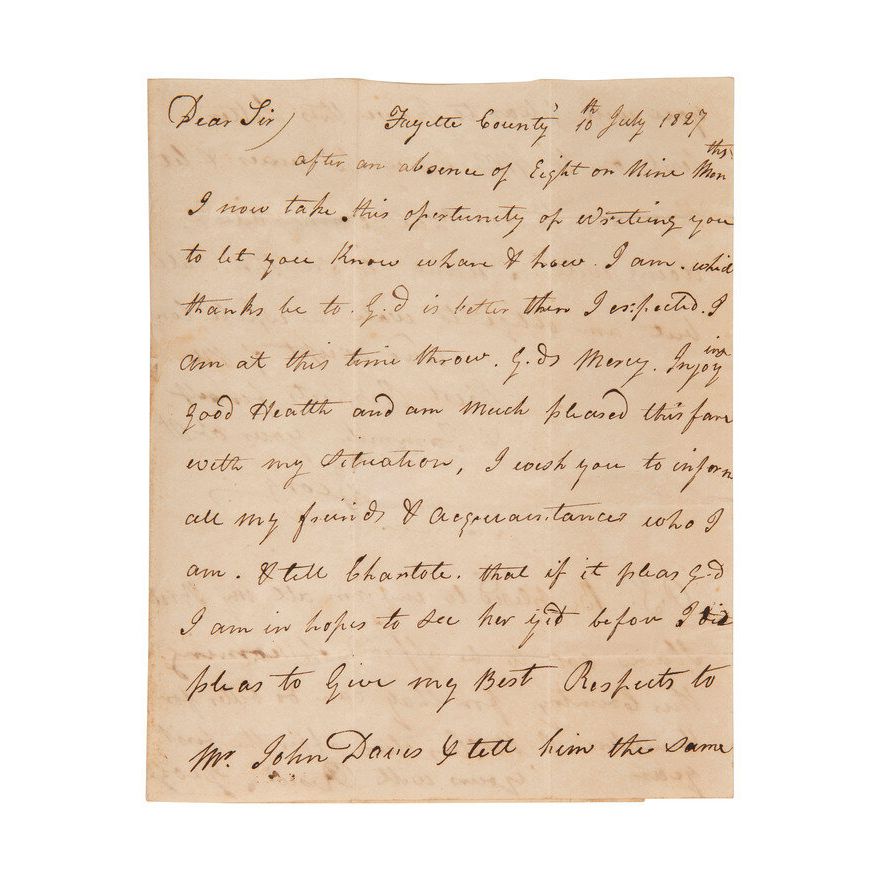 Dear Sir) Fayette County 10th July 1827
after an absence of Eight or Nine Months
I now take this opertunity of Writing you
to let you Know whare & how I am. whic
thanks be to. G.d is better then I expected. I
am at this time throw. G.ds Mercy. Injoying
good Health and am Much pleased this fare
with my Situation, I wish you to inform
all my friends & Acquaintances who I
am. & tell Charlote. that if it pleas G.d
I am in hopes to See her yid before I
pleas to Give my Best Respects to
Mr. John Davis & tell him the Same